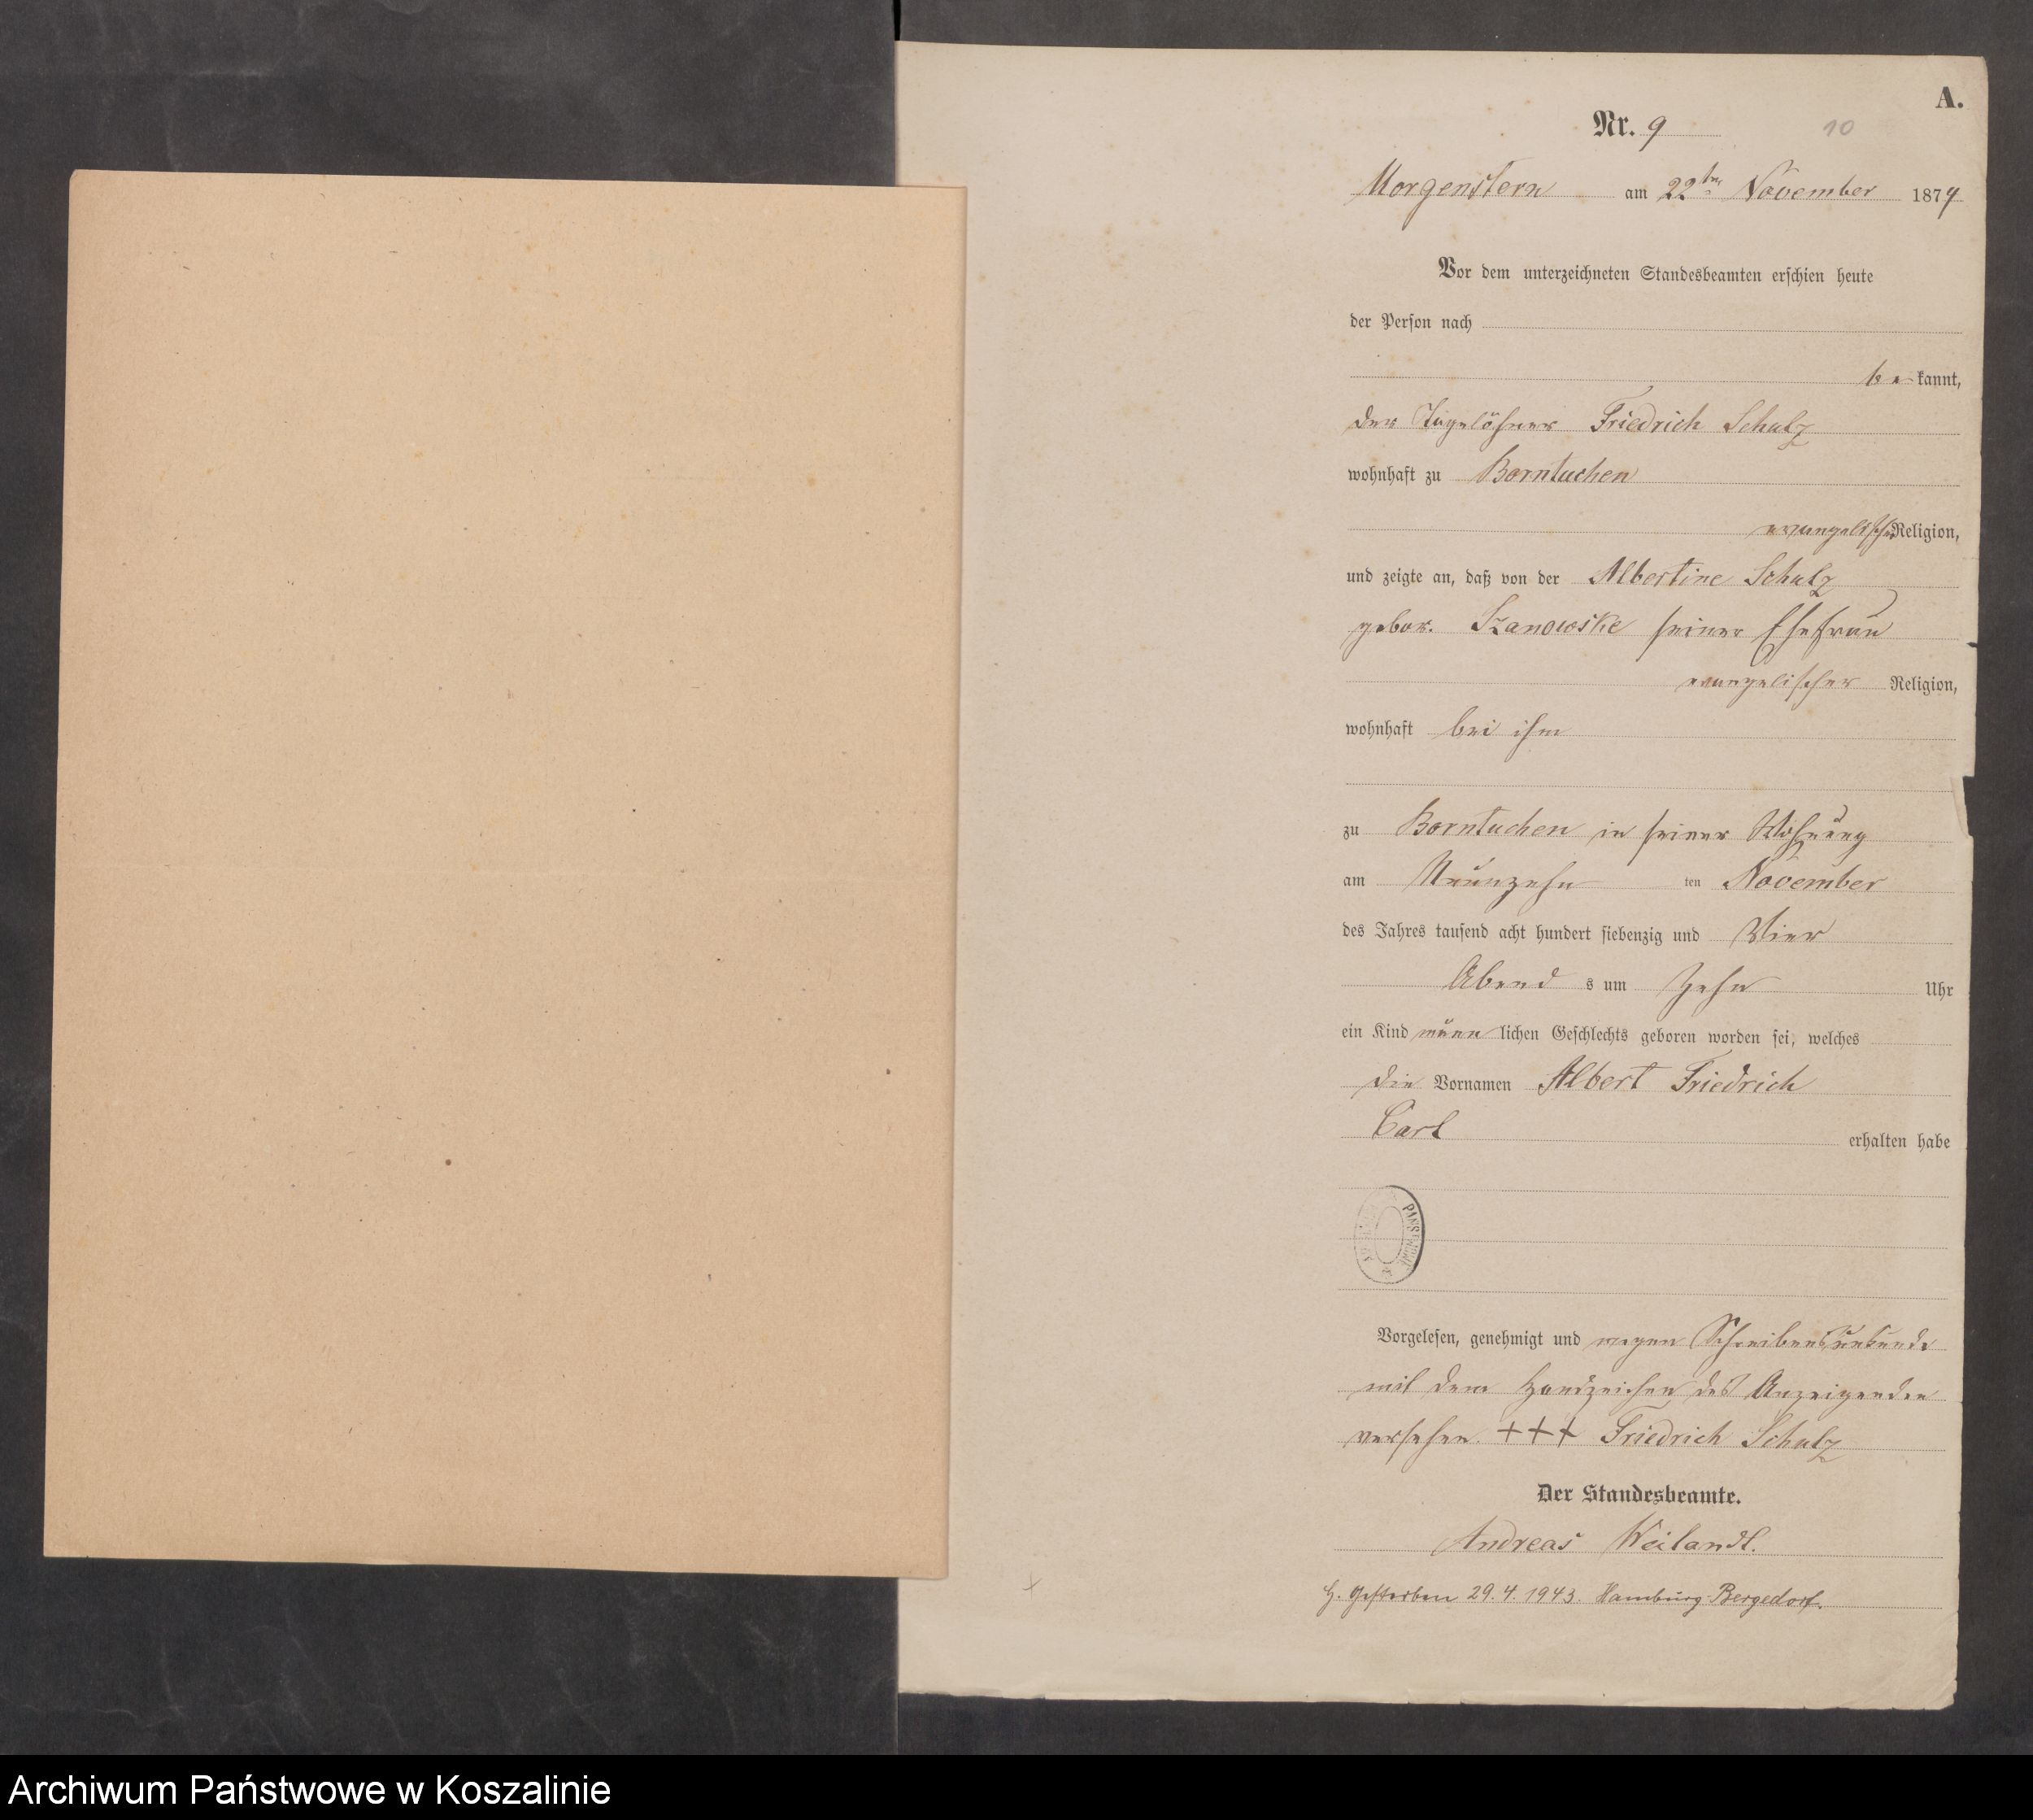 A.
Nr. 9
10
Morgenstern am 22ten November 1874
Vor dem unterzeichneten Standesbeamten erschien heute
der Person nach
be kannt,
der Tagelöhner Friedrich Schulz
wohnhaft zu Borntuchen
evangelischer Religion,
und zeigte an, daß von der Albertine Schulz
gebor. Szanowske seiner Ehefrau
evangelischer Religion,
wohnhaft bei ihm
zu Borntuchen in seiner Wohnung
am Neunzehn ten November
des Jahres tausend acht hundert siebenzig und Vier
Abend s um Zehn Uhr
ein Kind männ lichen Geschlechts geboren worden sei, welches
die Vornamen Albert Friedrich
Carl erhalten habe
Vorgelesen, genehmigt und wegen Schreibensunkunde
mit dem Handzeichen des Anzeigenden
versehen. +++ Friedrich Schulz
Der Standesbeamte.
Andreas Weilandt.
Gestorben 29.4.1943. Hamburg-Bergedorf.
Archiwum Państwowe w Koszalinie